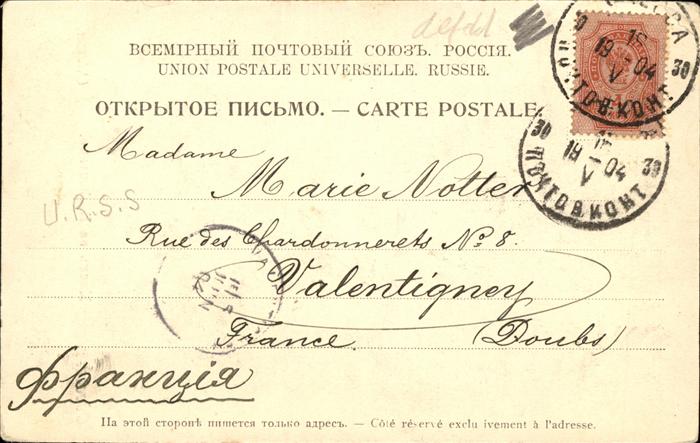 ВСЕМІРНЫЙ ПОЧТОВЫЙ СОЮЗЪ. РОССІЯ.
UNION POSTALE UNIVERSELLE. RUSSIE.
ОТКРЫТОЕ ПИСЬМО. — CARTE POSTALE.
Madame
Marie Notter
U.R.S.S
Rue des Chardonnerets No 8.
Valentigney
France (Doubs)
Франція
На этой сторонѣ пишется только адресъ. — Côté réservé exclu ivement à l'adresse.
19 04
V
30
ПОЧТОВ КОНТ
30
19 04
V
30
ПОЧТОВ КОНТ